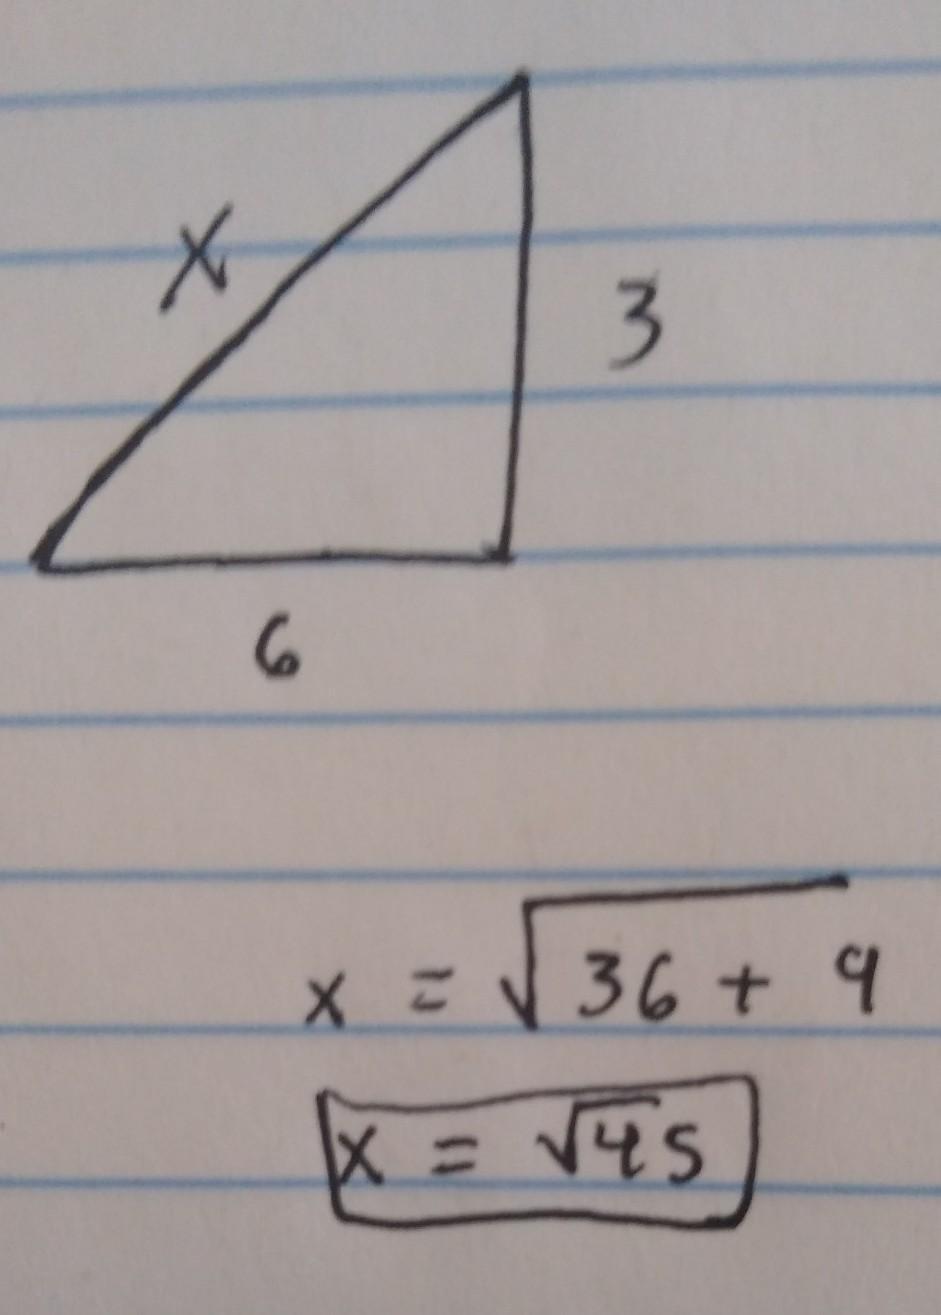 x
3
6
x = √36 + 9
x = √45